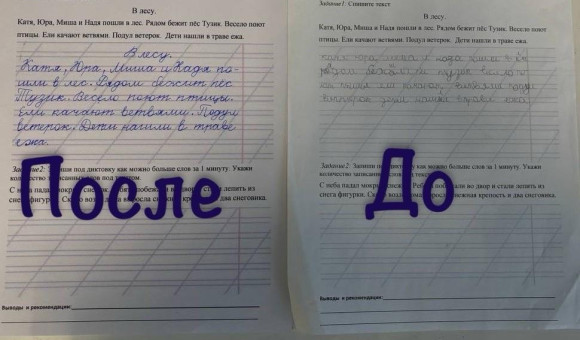 В лесу.
Катя, Юра, Миша и Надя пошли в лес. Рядом бежит пёс Тузик. Весело поют
птицы. Ели качают ветвями. Подул ветерок. Дети нашли в траве ежа.
В лесу.
Катя, Юра, Миша и Надя по-
шли в лес. Рядом бежит пёс
Тузик. Весело поют птицы.
Ели качают ветвями. Подул
ветерок. Дети нашли в траве
ежа.
Задание2: Запиши под диктовку как можно больше слов за 1 минуту. Укажи
количество записанных слов под текстом.
С неба падал мокрый снежок. побежали во двор и стали лепить из
снега фигурки. Скоро возле дома выросла снежная крепость и два снеговика.
После
Выводы и рекомендации:
Задание1: Спишите текст
В лесу.
Катя, Юра, Миша и Надя пошли в лес. Рядом бежит пёс Тузик. Весело поют
птицы. Ели качают ветвями. Подул ветерок. Дети нашли в траве ежа.
Задание2: Запиши под диктовку как можно больше слов за 1 минуту. Укажи
количество записанных слов под текстом.
С неба падал мокрый снежок. Ребята побежали во двор и стали лепить из
снега фигурки. Скоро возле дома выросла снежная крепость и два снеговика.
До
Выводы и рекомендации: